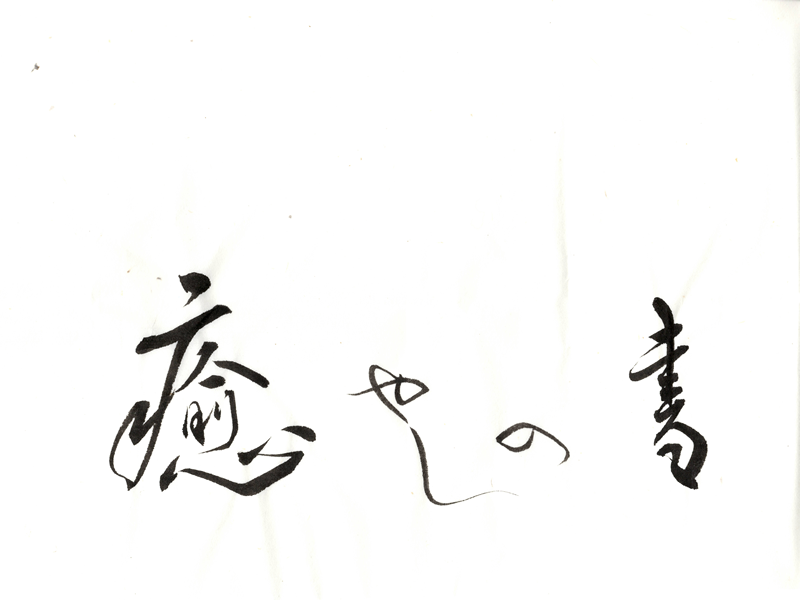 癒やしの書